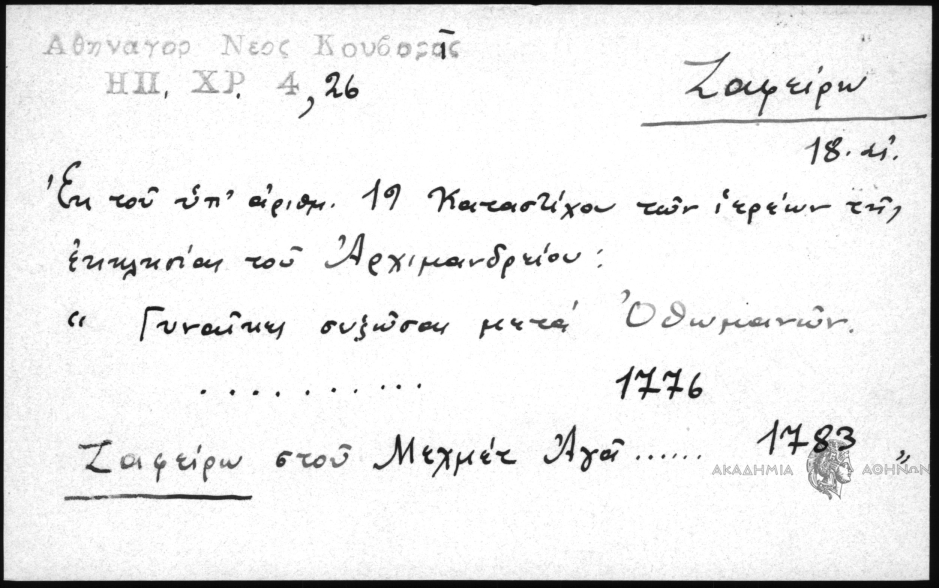 Αθηναγορ Νεος Κουβαρᾶς
ΗΠ. ΧΡ. 4, 26
Ζαφείρω
18. αἰ.
Ἐκ τοῦ ὑπ' ἀριθμ. 19 Καταστίχου τῶν ἱερέων τῆς
ἐκκλησίας τοῦ Ἀρχιμανδρείου:
“ Γυναῖκες συζῶσαι μετά Ὀθωμανῶν.
. . . . . . . . . . . 1776
Ζαφείρω στοῦ Μεχμέτ Ἀγᾶ ...... 1783 „
ΑΚΑΔΗΜΙΑ ΑΘΗΝΩΝ